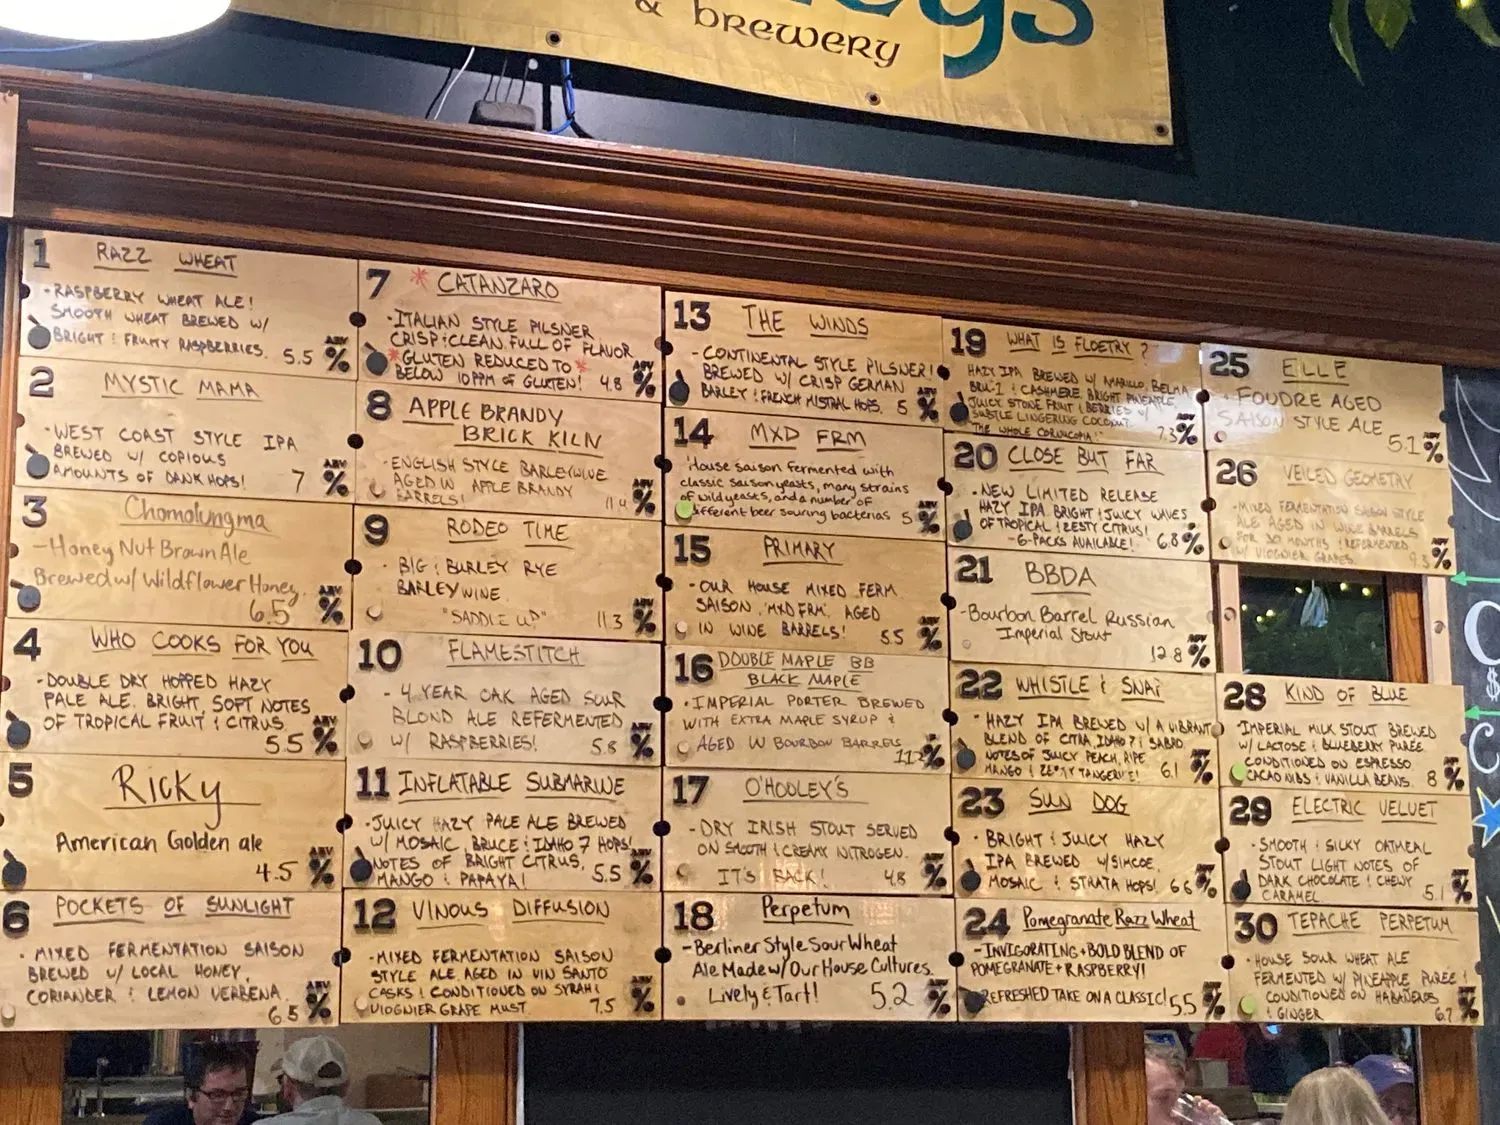 & brewery
1 RAZZ WHEAT
-RASPBERRY WHEAT ALE!
SMOOTH WHEAT BREWED W/
BRIGHT & FRUITY RASPBERRIES. 5.5 ABV %
2 MYSTIC MAMA
-WEST COAST STYLE IPA
BREWED W/ COPIOUS
AMOUNTS OF DANK HOPS! 7 ABV %
3 Chomolungma
-Honey Nut Brown Ale
Brewed w/ Wildflower Honey. 6.5 ABV %
4 WHO COOKS FOR YOU
-DOUBLE DRY HOPPED HAZY
PALE ALE. BRIGHT, SOFT NOTES
OF TROPICAL FRUIT & CITRUS 5.5 ABV %
5 Ricky
American Golden ale
4.5 ABV %
6 POCKETS OF SUNLIGHT
- MIXED FERMENTATION SAISON
BREWED W/ LOCAL HONEY,
CORIANDER & LEMON VERBENA. 6.5 ABV %
7 * CATANZARO
-ITALIAN STYLE PILSNER
CRISP & CLEAN. FULL OF FLAVOR
*GLUTEN REDUCED TO *
BELOW 10PPM OF GLUTEN! 4.8 ABV %
8 APPLE BRANDY
BRICK KILN
-ENGLISH STYLE BARLEYWINE
AGED IN APPLE BRANDY
BARRELS! 11.4 ABV %
9 RODEO TIME
- BIG & BURLEY RYE
BARLEYWINE.
"SADDLE UP" 11.3 ABV %
10 FLAMESTITCH
- 4 YEAR OAK AGED SOUR
BLOND ALE REFERMENTED
W/ RASPBERRIES! 5.8 ABV %
11 INFLATABLE SUBMARINE
-JUICY HAZY PALE ALE BREWED
W/ MOSAIC, BRUCE & IDAHO 7 HOPS!
NOTES OF BRIGHT CITRUS,
MANGO & PAPAYA! 5.5 ABV %
12 VINOUS DIFFUSION
-MIXED FERMENTATION SAISON
STYLE ALE AGED IN VIN SANTO
CASKS & CONDITIONED ON SYRAH &
VIOGNIER GRAPE MUST. 7.5 ABV %
13 THE WINDS
- CONTINENTAL STYLE PILSNER!
BREWED W/ CRISP GERMAN
BARLEY & FRENCH MISTRAL HOPS. 5 ABV %
14 MXD FRM
House saison fermented with
classic saison yeasts, many strains
of wild yeasts, and a number of
different beer souring bacterias 5 ABV %
15 PRIMARY
- OUR HOUSE MIXED FERM
SAISON, "MXD FRM", AGED
IN WINE BARRELS! 5.5 ABV %
16 DOUBLE MAPLE BB
BLACK MAPLE
- IMPERIAL PORTER BREWED
WITH EXTRA MAPLE SYRUP &
AGED IN BOURBON BARRELS 11.2 ABV %
17 O'HOOLEY'S
-DRY IRISH STOUT SERVED
ON SMOOTH & CREAMY NITROGEN.
IT'S BACK! 4.8 ABV %
18 Perpetum
-Berliner Style Sour Wheat
Ale Made w/ Our House Cultures.
Lively & Tart! 5.2 ABV %
19 WHAT IS FLOETRY?
HAZY IPA BREWED W/ AMARILLO, BELMA
BRU-1 & CASHMERE. BRIGHT PINEAPPLE,
JUICY STONE FRUIT & BERRIES W/
SUBTLE LINGERING COCONUT.
"THE WHOLE CORNUCOPIA!" 7.3 ABV %
20 CLOSE BUT FAR
- NEW LIMITED RELEASE
HAZY IPA BRIGHT & JUICY WAVES
OF TROPICAL & ZESTY CITRUS!
-6-PACKS AVAILABLE! 6.8 ABV %
21 BBDA
-Bourbon Barrel Russian
Imperial Stout
12.8 ABV %
22 WHISTLE & SNAP
- HAZY IPA BREWED W/ A VIBRANT
BLEND OF CITRA, IDAHO 7 & SABRO.
NOTES OF JUICY PEACH, RIPE
MANGO & ZESTY TANGERINE! 6.1 ABV %
23 SUN DOG
- BRIGHT & JUICY HAZY
IPA BREWED W/ SIMCOE,
MOSAIC & STRATA HOPS! 6.6 ABV %
24 Pomegranate Razz Wheat
-INVIGORATING + BOLD BLEND OF
POMEGRANATE + RASPBERRY!
REFRESHED TAKE ON A CLASSIC! 5.5 ABV %
25 ELLE
- FOUDRE AGED
SAISON STYLE ALE
5.1 ABV %
26 VEILED GEOMETRY
-MIXED FERMENTATION SAISON STYLE
ALE AGED IN WINE BARRELS
FOR 30 MONTHS & REFERMENTED
W/ VIOGNIER GRAPES. ABV %
28 KIND OF BLUE
-IMPERIAL MILK STOUT BREWED
W/ LACTOSE & BLUEBERRY PUREE
CONDITIONED ON ESPRESSO
CACAO NIBS & VANILLA BEANS. 8 ABV %
29 ELECTRIC VELVET
- SMOOTH & SILKY OATMEAL
STOUT LIGHT NOTES OF
DARK CHOCOLATE & CHEWY
CARAMEL 5.1 ABV %
30 TEPACHE PERPETUM
-HOUSE SOUR WHEAT ALE
FERMENTED W/ PINEAPPLE PUREE &
CONDITIONED ON HABANEROS
& GINGER 6.7 ABV %